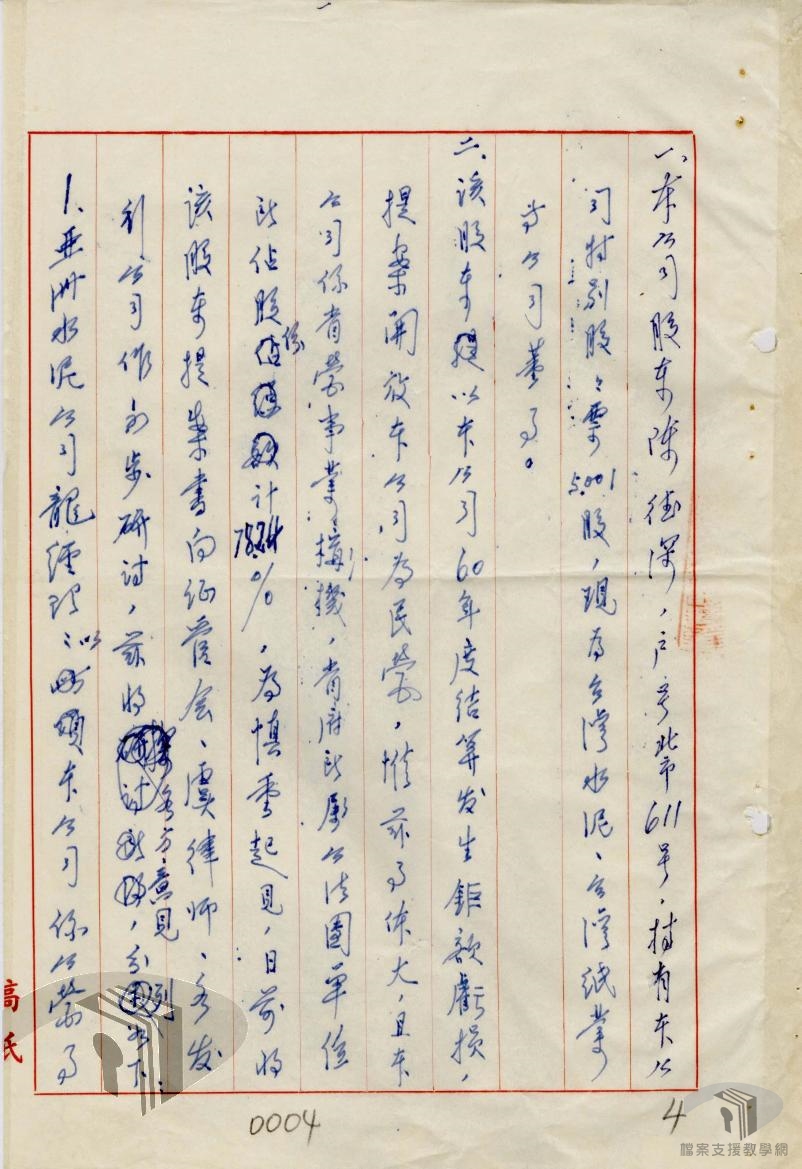 一、本公司股東陳德深，戶号北市611号，持有本公
司特別股々票5,001股，現為台灣水泥、台灣紙業
等公司董事。
二、該股東以本公司60年度結算发生鉅額虧損，
提案開放本公司為民營，惟茲事体大，且本
公司係省營事業機構，省府所屬公法團單位
所佔股份計78.24%，為慎重起見，日前將
該股東提案書向証管会、虞律師、各发
利公司作初步研討，茲將各方意見，分列如下：
1、亞洲水泥公司龍經理：以本公司係公營事
高 氏
0004
4
檔案支援教學網